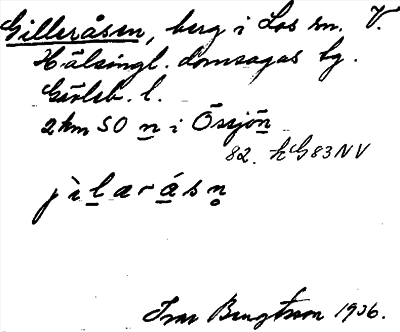 Gilleråsen, berg i Los sn. V.
Hälsingl. domsagas tg.
Gävleb. l.
2 km SO n i Össjön
82. h G83NV
jìlaråsn̥
Ivar Bengtsson 1936.